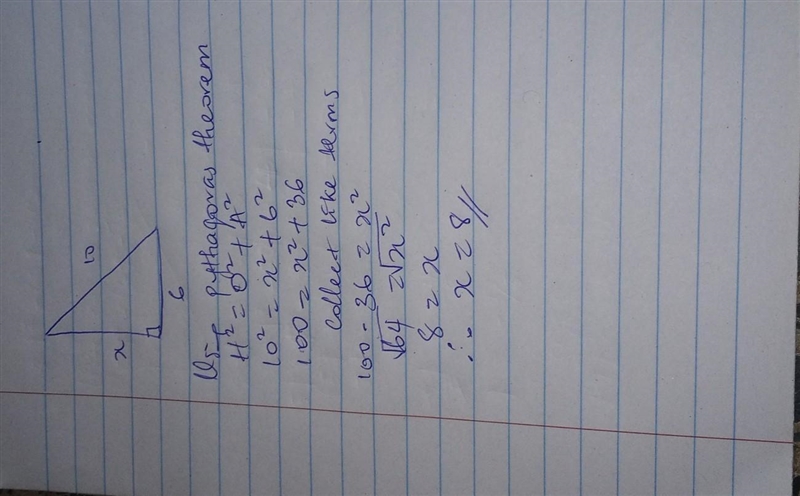 10
x
6
Using pythagoras theorem
H² = O² + A²
10² = x² + 6²
100 = x² + 36
Collect like terms
100 - 36 = x²
√64 = √x²
8 = x
∴ x = 8//